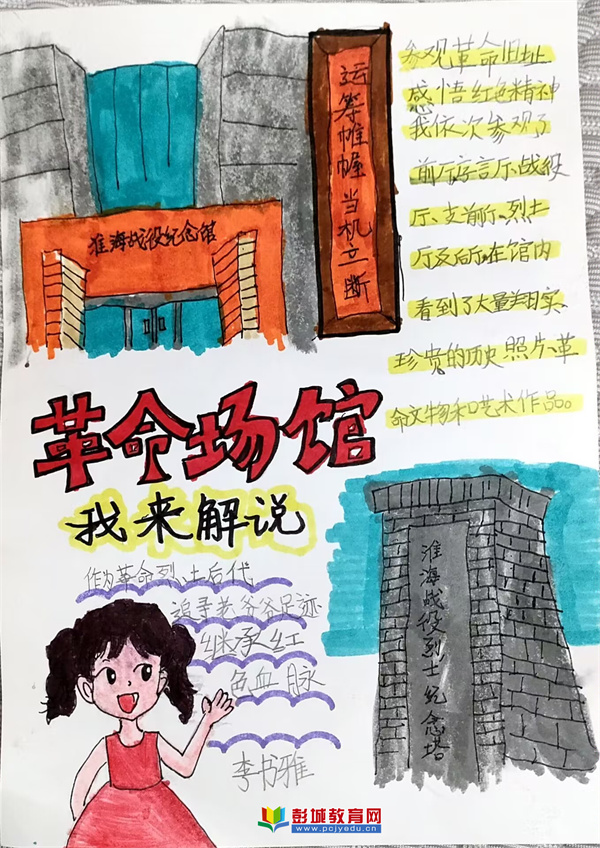 淮海战役纪念馆
运筹帷幄 当机立断
参观革命旧址
感悟红色精神
我依次参观了
前厅序言厅、战役
厅、支前厅、烈士
厅及后厅,在馆内
看到了大量翔实、
珍贵的历史照片、革
命文物和艺术作品。
革命场馆
我来解说
作为革命烈士后代
追寻老爷爷足迹
继承红
色血脉
李书雅
淮海战役烈士纪念塔
彭城教育网
www.pcjyedu.cn